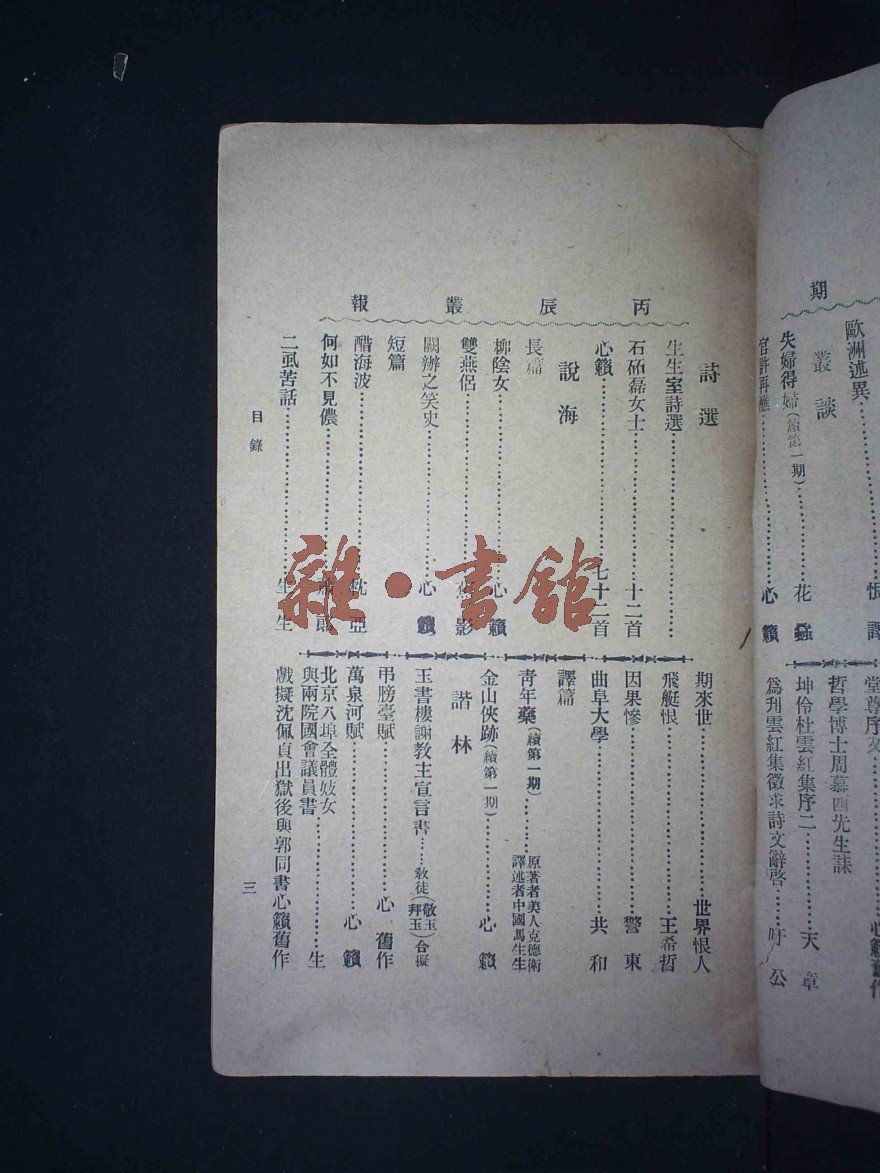 期
歐洲述異
恨譯
叢談
失婦得婦(續第一期)
花蟊
官許再醮
心籟
堂尊序文
心籟舊作
哲學博士周慕西先生誄
坤伶杜雲紅集序二
天章
爲刋雲紅集徵求詩文辭啓
吁公
丙辰叢報
詩選
生生室詩選
石砳磊女士
十二首
心籟
七十二首
說海
長篇
柳陰女
心籟
雙燕侶
影
闢辦之笑史
心籟
短篇
醋海波
枕亞
何如不見儂
二虱苦話
生生
期來世
世界恨人
飛艇恨
王希哲
因果慘
警東
曲阜大學
共和
譯篇
青年藥(續第一期)
原著者美人克德衛
譯述者中國馬生生
金山俠跡(續第一期)
心籟
諧林
玉書樓謝教主宣言書
教徒(敬玉拜玉)合擬
弔膀臺賦
心舊作
萬泉河賦
心籟
北京八埠全體妓女
與兩院國會議員書
生
戲擬沈佩貞出獄後與郭同書
心籟舊作
目錄
三
雜·書館